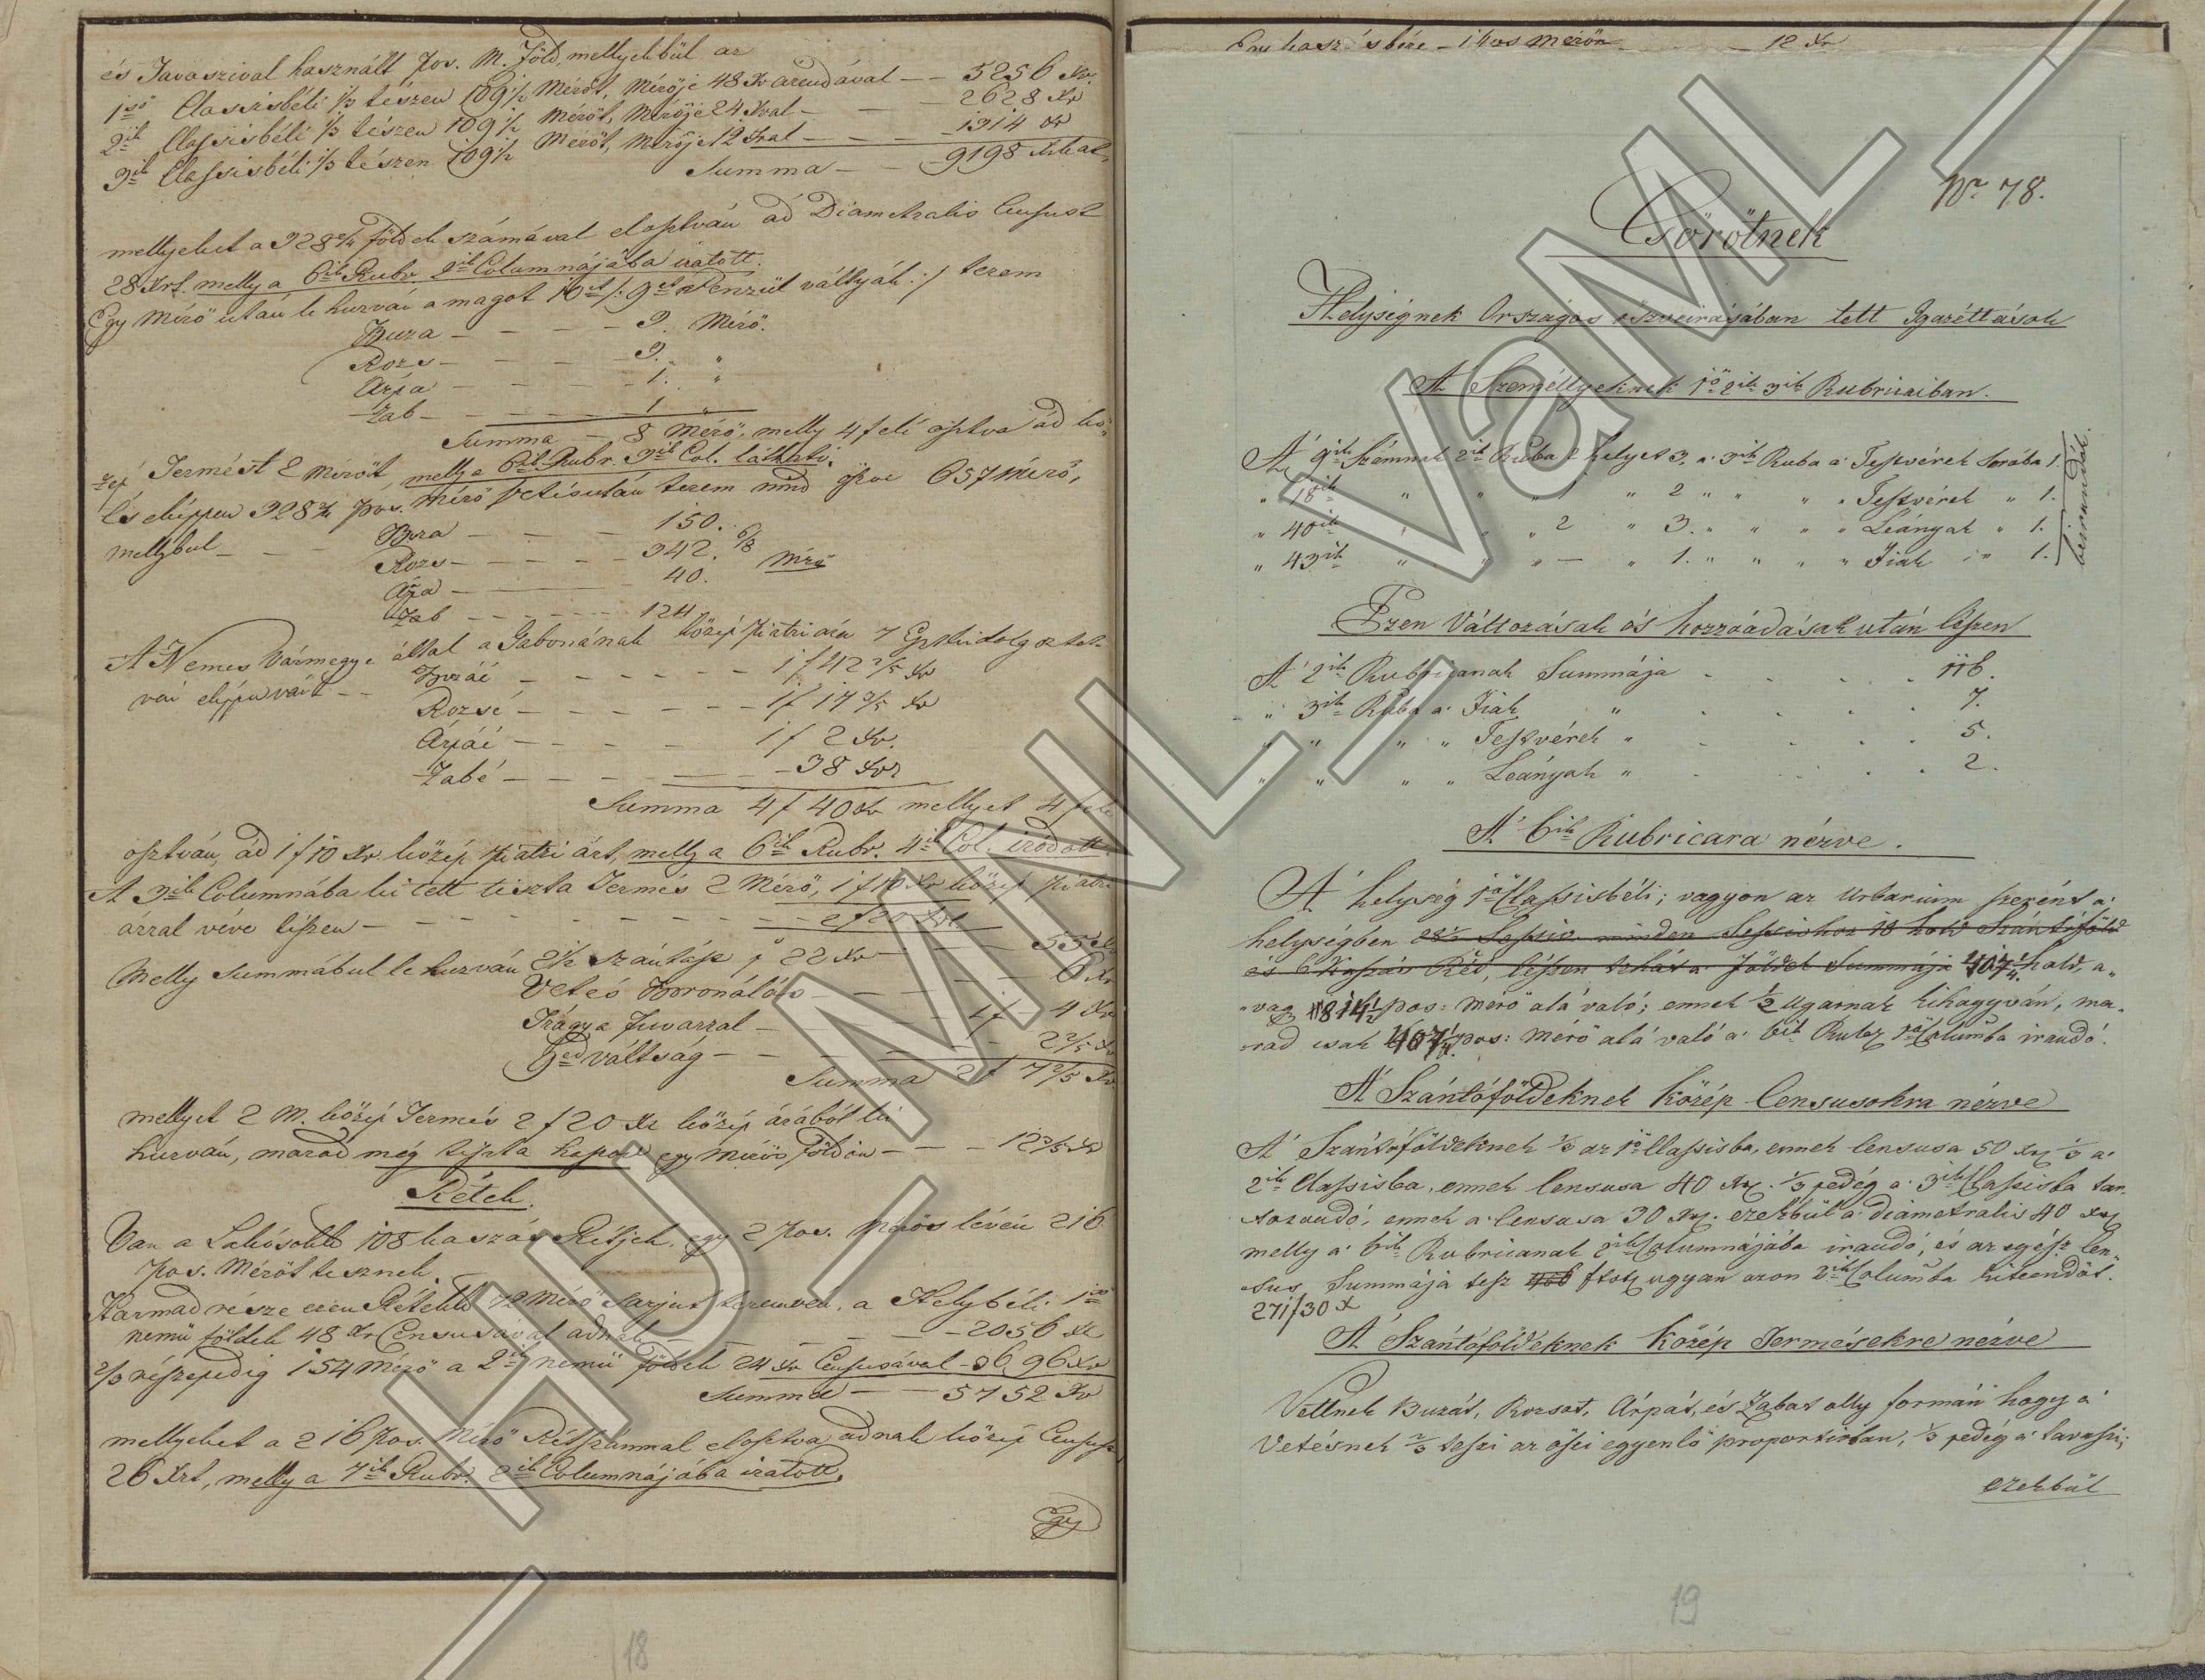 és Tavaszival használt Pos. M. Föld, mellyekbül az
1ső Classisbéli 1/3 tészen 109 1/2 Mérőt, Mérője 48 Xr árendával — — 5256 Xr.
2ik Classisbéli 1/3 tészen 109 1/2 Mérőt, Mérője 24 Xral — — — 2628 Xr
3ik Classisbéli 1/3 tészen 109 1/2 Mérőt, Mérője 12 Xral — — — 1314 Xr
Summa — — 9198
mellyeket a 328 földek számával elosztván ád Diametralis Censust
28 Xrt. melly a 6ik Rubr. 2ik Columnájába iratott.
Egy Mérő után le huzván a magot 10et /: 9et pénzül váltyák :/ terem
Buza — — — — 3. Mérő.
Rozs — — — — 3. "
Árpa — — — — 1. "
Zab — — — — 1 "
Summa — 8 Mérő, melly 4 felé osztva ád kö-
zép Termést 2 Mérőt, melly a 6ik Rubr. 3ik Col. láttatik.
És eképpen 328 pos. Mérő vetés után terem mind öszve 657 Mérő,
mellybul — — — Buza — — — 150.
Rozs — — — — 342. 6/8
Árpa — — — 40. Mérő
Zab — — — — 124
A Nemes Vármegye által a Gabonának közép piatzi ára 7 Eszt. kidolgoztat-
ván eképpen vált — — Buzáé — — — — 1 f 42 2/5 Xr
Rozsé — — — — — 1 f 17 3/5 Xr
Árpáé — — — — 1 f 2 Xr.
Zabé — — — — 38 Xr
Summa 4 f 40 Xr mellyet 4 felé
osztván, ád 1 f 10 Xr közép piatzi árt, melly a 6ik Rubr. 4ik Col. iródott.
A 3ik Columnába ki tett tiszta Termés 2 Mérő, 1 f 10 Xr közép piatzi
árral véve tészen — — — — — — — 2 f 20 Xrt
Melly Summábul le huzván 2 1/2 szántást p 22 Xr — — — 55 Xr
Vetés Boronálás — — — — 6 Xr
Trágya fuvarral — — — 1 f — 4 Xr
9ed váltság — — — — 2 2/5 Xr
Summa 2 f 7 2/5 Xr
mellyet 2 M. közép Termés 2 f 20 Xr közép árából ki
huzván, marad még tiszta haszon egy mérős földön — — — 12 3/5 Xr
Rétek.
Van a Lakósokk 108 kaszás Rétjek, egy 2 pos. Mérős lévén 216
pos. Mérőt tesznek.
Harmad része ezen Rétekk 72 Mérő sarjut teremvén, a Helybéli 1ső
nemü földek 48 Xr Censusával adnak — — — — 2056 Xr
2/3 része pedig 154 Mérő a 2ik nemü földek 24 Xr Censusával — 3696 Xr
Summa — — 5752 Xr
mellyeket a 216 pos. Mérő Rétszámmal elosztva adnak közép Census
26 Xrt, melly a 7ik Rubr. 2ik Columnájába iratott.
Egy
18
Egy kaszás bére — 14os Mérőn — — 12 Xr
Nro 78.
Csörötnek
Helységnek Országos öszveirásában tett Igazéttások
A Személlyeknek 1ső 2ik 3ik Rubricaiban.
A' 9ik Számnak 2ik Rubr. 2 helyet 3, a' 3ik Ruba a' Testvérek Sorába 1.
" 18ik " " " 1 " 2 " " " " Testvérek " 1.
" 40ik " " " 2 " 3. " " " " Leányak " 1.
" 43ik " " " — " 1. " " " " Fiak " 1.
beirandók.
Ezen Változásak és hozzáadásak után lészen
A' 2ik Rubricanak Summája . . . . 116.
" 3ik Ruba a' Fiak " . . . . 7.
" " " " Testvérek " . . . . 5.
" " " " Leányak " . . . . 2.
A' 6ik Rubricara nézve.
A' helység 1ső Classisbéli; vagyon az Urbarium szerént a'
helységben 28 1/2 Sessio minden Sessiohoz 18 hold Szántóföld
és 6 Kaszás Rét, lészen tehát a' Földek Summája 407 1/4 hold, a-
vag 814 1/2 pos: mérő alá való; ennek 1/2 Ugarnak kihagyván, ma-
rad csak 407 1/4 pos: mérő alá való a' 6ik Rubr 1ső Columba iraudó.
A' Szántóföldeknek Közép Censusokra nézve
A' Szántóföldeknek 1/3 az 1ső Classisba, ennek Censusa 50 Xr, 1/3 a'
2ik Classisba, ennek Censusa 40 Xr. 1/3 pedég a' 3ik Classisba tar-
tozandó, ennek a' Censusa 30 Xr. ezekbül a' diametralis 40 Xr
melly a' 6ik Rubricanak 2ik Columnájába iraudó, és az egész Cen-
sus Summája tesz 406 ftok ugyan azon 2ik Columba kiteendőt.
271 f 30 X
A' Szántóföldéknek Közép Termésekre nézve
Vettnek Buzát, Rozsot, Árpát, és Zabat olly formán hogy a'
Vetésnek 2/3 teszi az őszi egyenlő proportioban, 1/3 pedég a' tavaszi;
ezekbül
19
HU MNL VaML